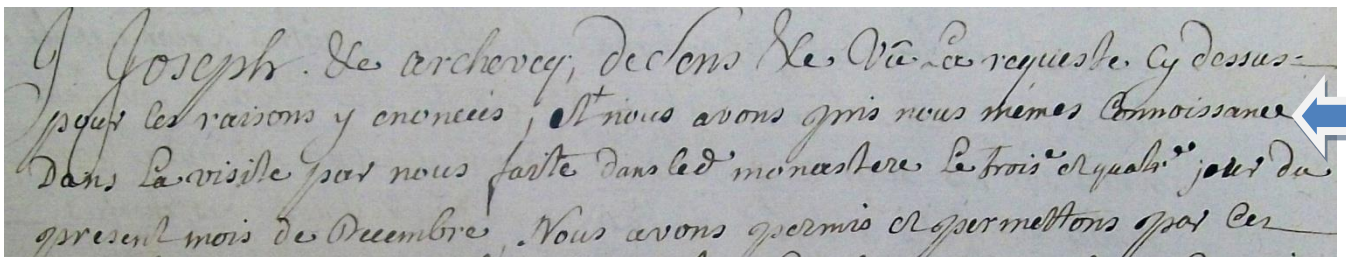 J Joseph. &c archevêq; de Sens &c Vû La requeste Cy dessus=
pour les raisons y enoncées, et nous avons pris nous mêmes Connoissance
Dans La visite par nous faitte dans led monastere Le trois.e et quatr.e jour du
present mois de Decembre, Nous avons permis et permettons par Ces